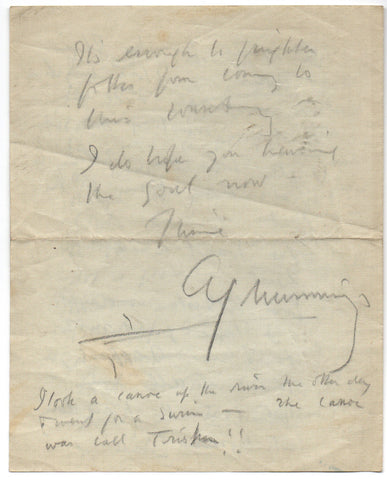 It's enough to frighten
folks from coming to
this country
I do hope you having
the Gout now
Thine
AJ Munnings
I took a canoe up the river the other day
& went for a swim — The Canoe
was call Trisham!!